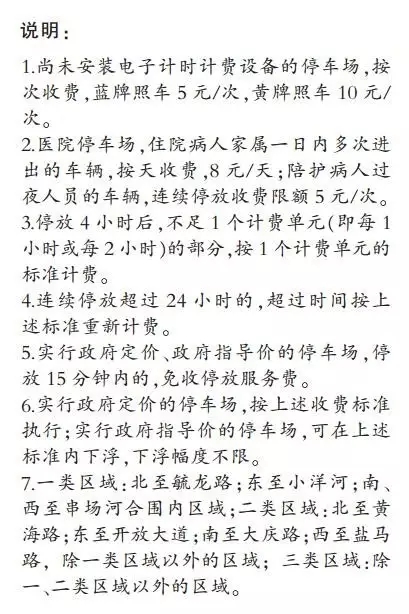 说明：
1.尚未安装电子计时计费设备的停车场,按
次收费,蓝牌照车 5 元/次,黄牌照车 10 元/
次。
2.医院停车场,住院病人家属一日内多次进
出的车辆,按天收费,8 元/天;陪护病人过
夜人员的车辆,连续停放收费限额 5 元/次。
3.停放 4 小时后,不足 1 个计费单元(即每 1
小时或每 2 小时)的部分,按 1 个计费单元的
标准计费。
4.连续停放超过 24 小时的,超过时间按上
述标准重新计费。
5.实行政府定价、政府指导价的停车场,停
放 15 分钟内的,免收停放服务费。
6.实行政府定价的停车场,按上述收费标准
执行;实行政府指导价的停车场,可在上述
标准内下浮,下浮幅度不限。
7.一类区域:北至毓龙路;东至小洋河;南、
西至串场河合围内区域;二类区域:北至黄
海路;东至开放大道;南至大庆路;西至盐马
路, 除一类区域以外的区域; 三类区域:除
一、二类区域以外的区域。